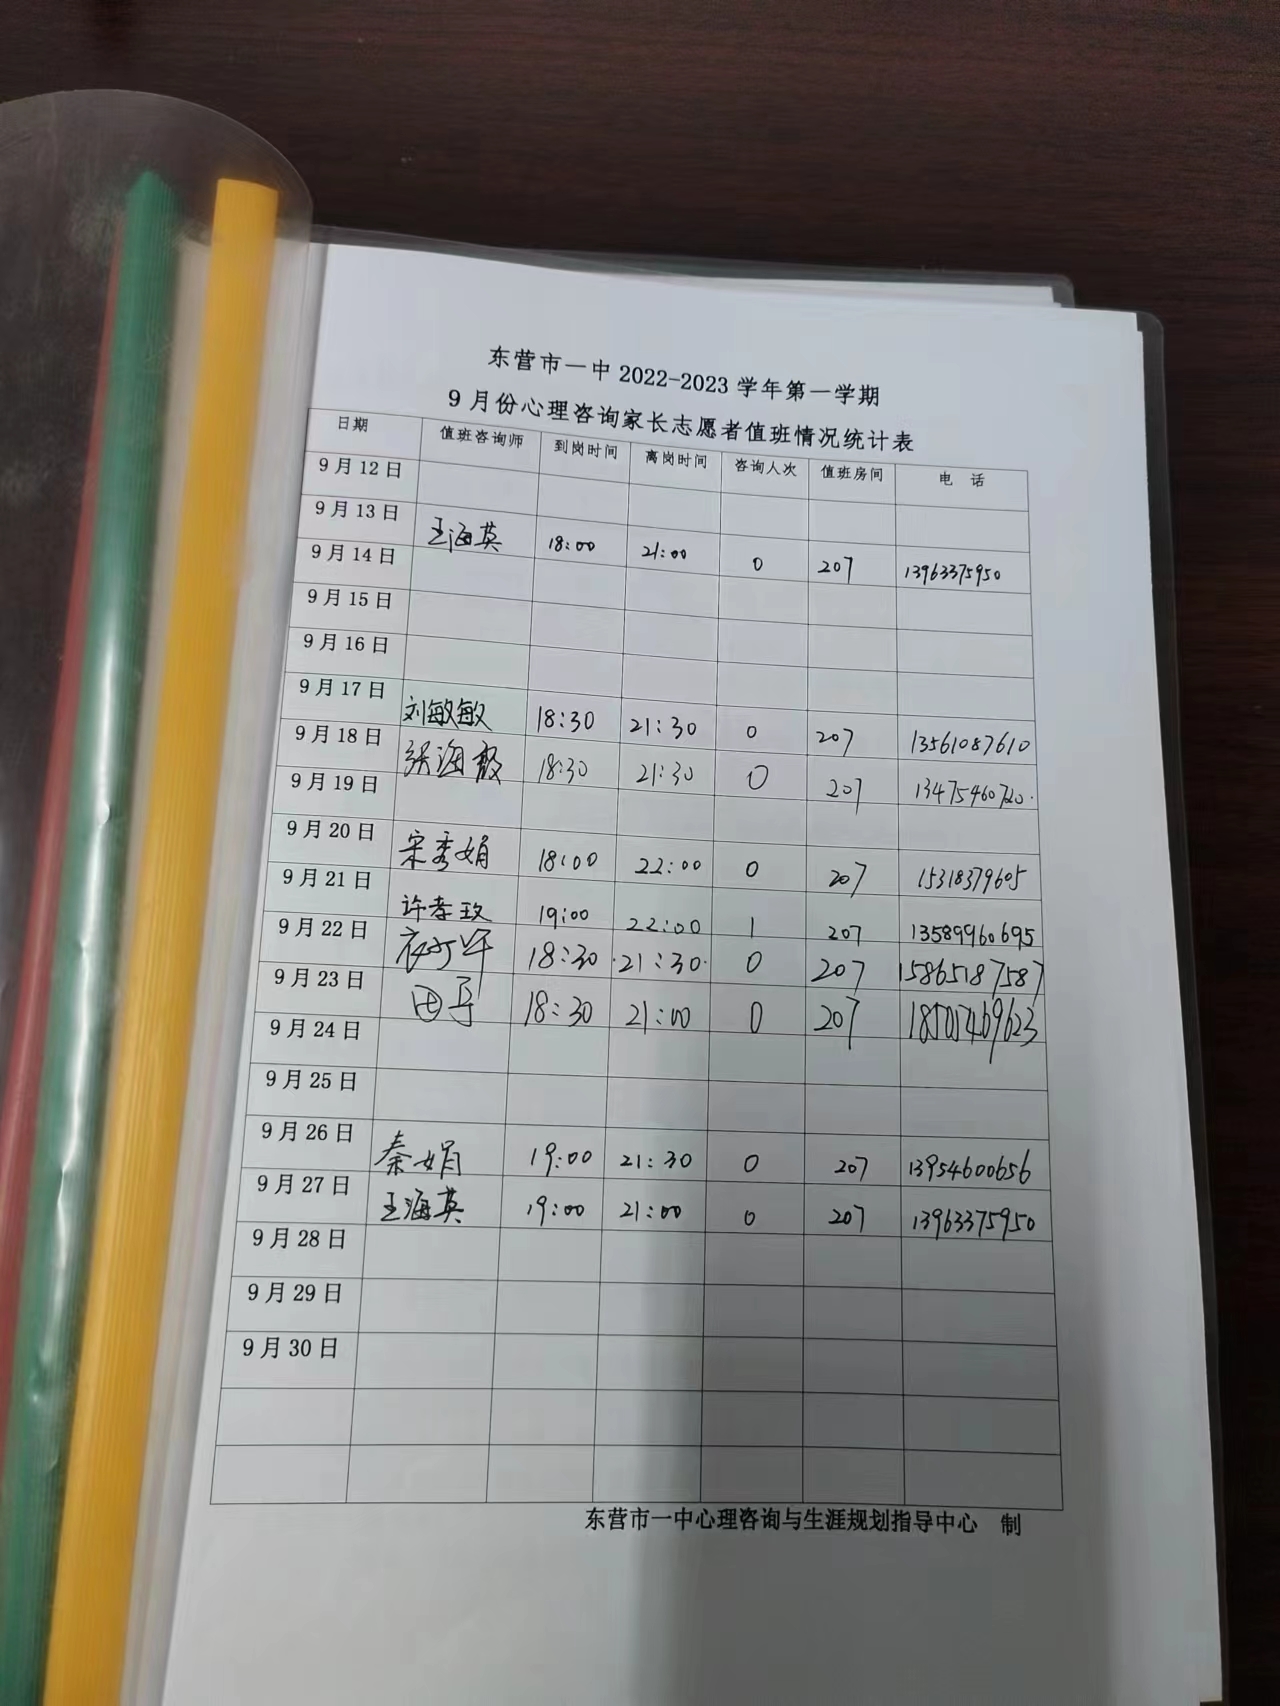 东营市一中 2022-2023 学年第一学期
9 月份心理咨询家长志愿者值班情况统计表
日期 值班咨询师 到岗时间 离岗时间 咨询人次 值班房间 电 话
9 月 12 日
9 月 13 日 王海英 18:00 21:00 0 207 13963375950
9 月 14 日
9 月 15 日
9 月 16 日
9 月 17 日 刘敏敏 18:30 21:30 0 207 13561087610
9 月 18 日 张海霞 18:30 21:30 0 207 13475460720
9 月 19 日
9 月 20 日 宋秀娟 18:00 22:00 0 207 15318379605
9 月 21 日 许孝玫 19:00 22:00 1 207 13589960695
9 月 22 日 18:30 21:30 0 207 15865187587
9 月 23 日 18:30 21:00 0 207
9 月 24 日
9 月 25 日
9 月 26 日 秦娟 19:00 21:30 0 207 13954600656
9 月 27 日 王海英 19:00 21:00 0 207 13963375950
9 月 28 日
9 月 29 日
9 月 30 日
东营市一中心理咨询与生涯规划指导中心 制